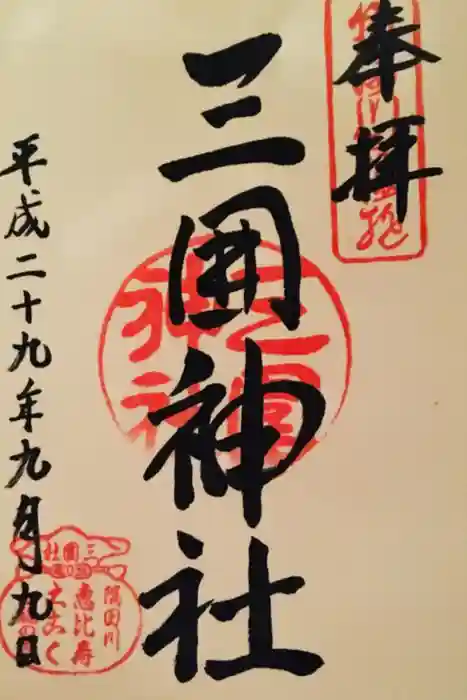 奉拝
三囲神社
平成二十九年九月九日
三囲神社
三囲社
隅田川
恵比寿
大こく